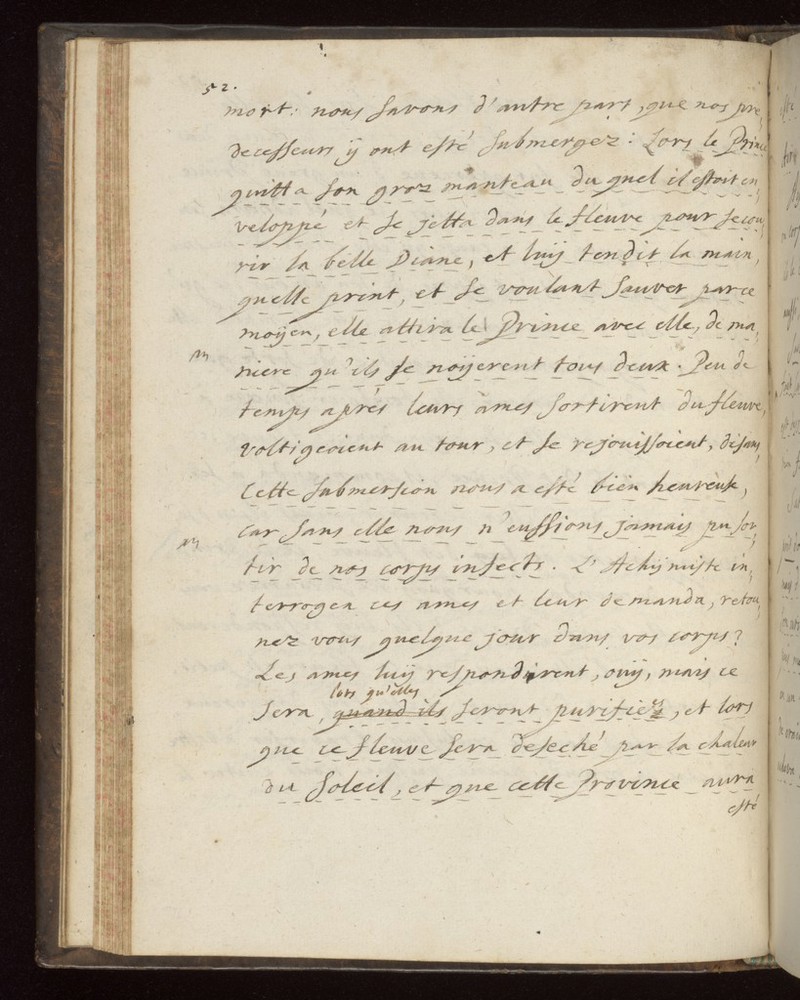 52.
mort: nous savons d'autre part, que nos pre,
decesseurs ÿ ont esté submergez: Lors le Prince
quitta son groz manteau du quel il estoit en,
veloppé et se jetta dans le fleuve pour secou,
rir la belle Diane, et luÿ tendit la main,
quelle print, et se voulant sauver parce
moÿen, elle attira le Prince avec elle, de ma,
niere qu'ils se noÿerent tous deux. Peu de
temps aprés leurs ames sortirent du fleuve,
voltigeoient au tour, et se rejouissoient, disans,
Cette submersion nous a esté bien heureux,
car sans elle nous n'eussions jamais pu sor,
tir de nos corps infects. L'Achÿmiste in,
terrogea ces ames et leur demanda, retou,
nez vous quelque jour dans vos corps?
Les ames luÿ respondirent, ouÿ, mais ce
lors qu'elles
sera, quand ils seront purifiez, et lors
que ce fleuve sera deseché par la chaleur
du Soleil, et que cette Province aura
esté